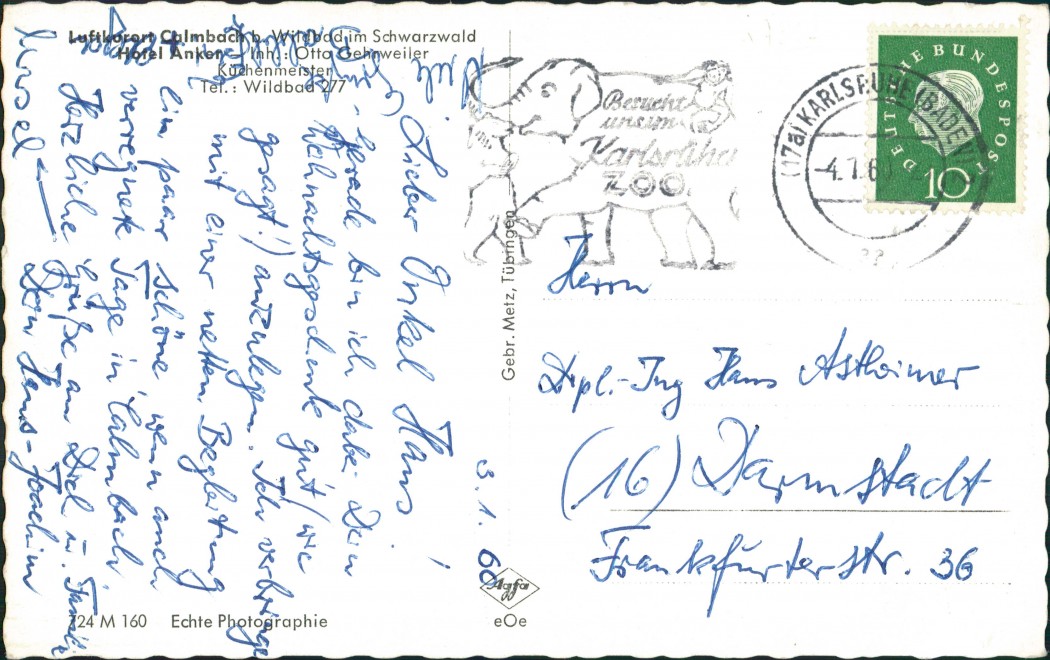 Luftkurort Calmbach b. Wildbad im Schwarzwald
Hotel Anker Inh.: Otto Gehrweiler
Küchenmeister
Tel.: Wildbad 277
3. 1. 60
Lieber Onkel Hans!
Gerade bin ich dabei Dein
Weihnachtsgeschenk gut (wie
gesagt!) anzulegen. Ich verbringe
mit einer netten Begleitung
ein paar schöne wenn auch
verregnete Tage in Calmbach
Herzliche Grüße an Dich u. Familie
Dein Hans-Joachim
724 M 160 Echte Photographie
Gebr. Metz, Tübingen
Agfa
eOe
Besucht
unsern
Karlsruher
ZOO
(17a) KARLSRUHE (BADEN)
-4.1.6
DEUTSCHE BUNDESPOST
10
Herrn
Dipl.-Ing Hans Astheimer
(16) Darmstadt
Frankfurterstr. 36